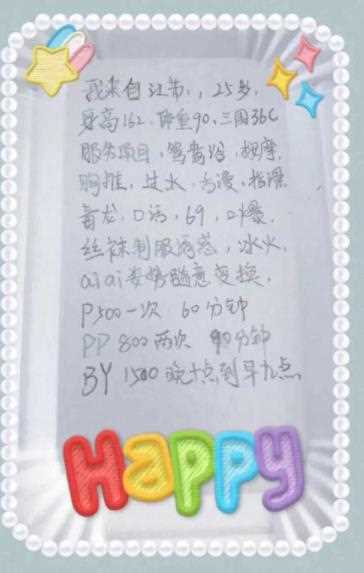 我来自江苏，25岁，
身高162，体重90，三围36C
服务项目，鸳鸯浴，按摩，
胸推，
毒龙，口活，69，口爆，
丝袜制服诱惑，冰火，
aiai姿势随意变换，
P500一次 60分钟
PP 800两次 90分钟
BY 1500晚十点到早九点
Happy